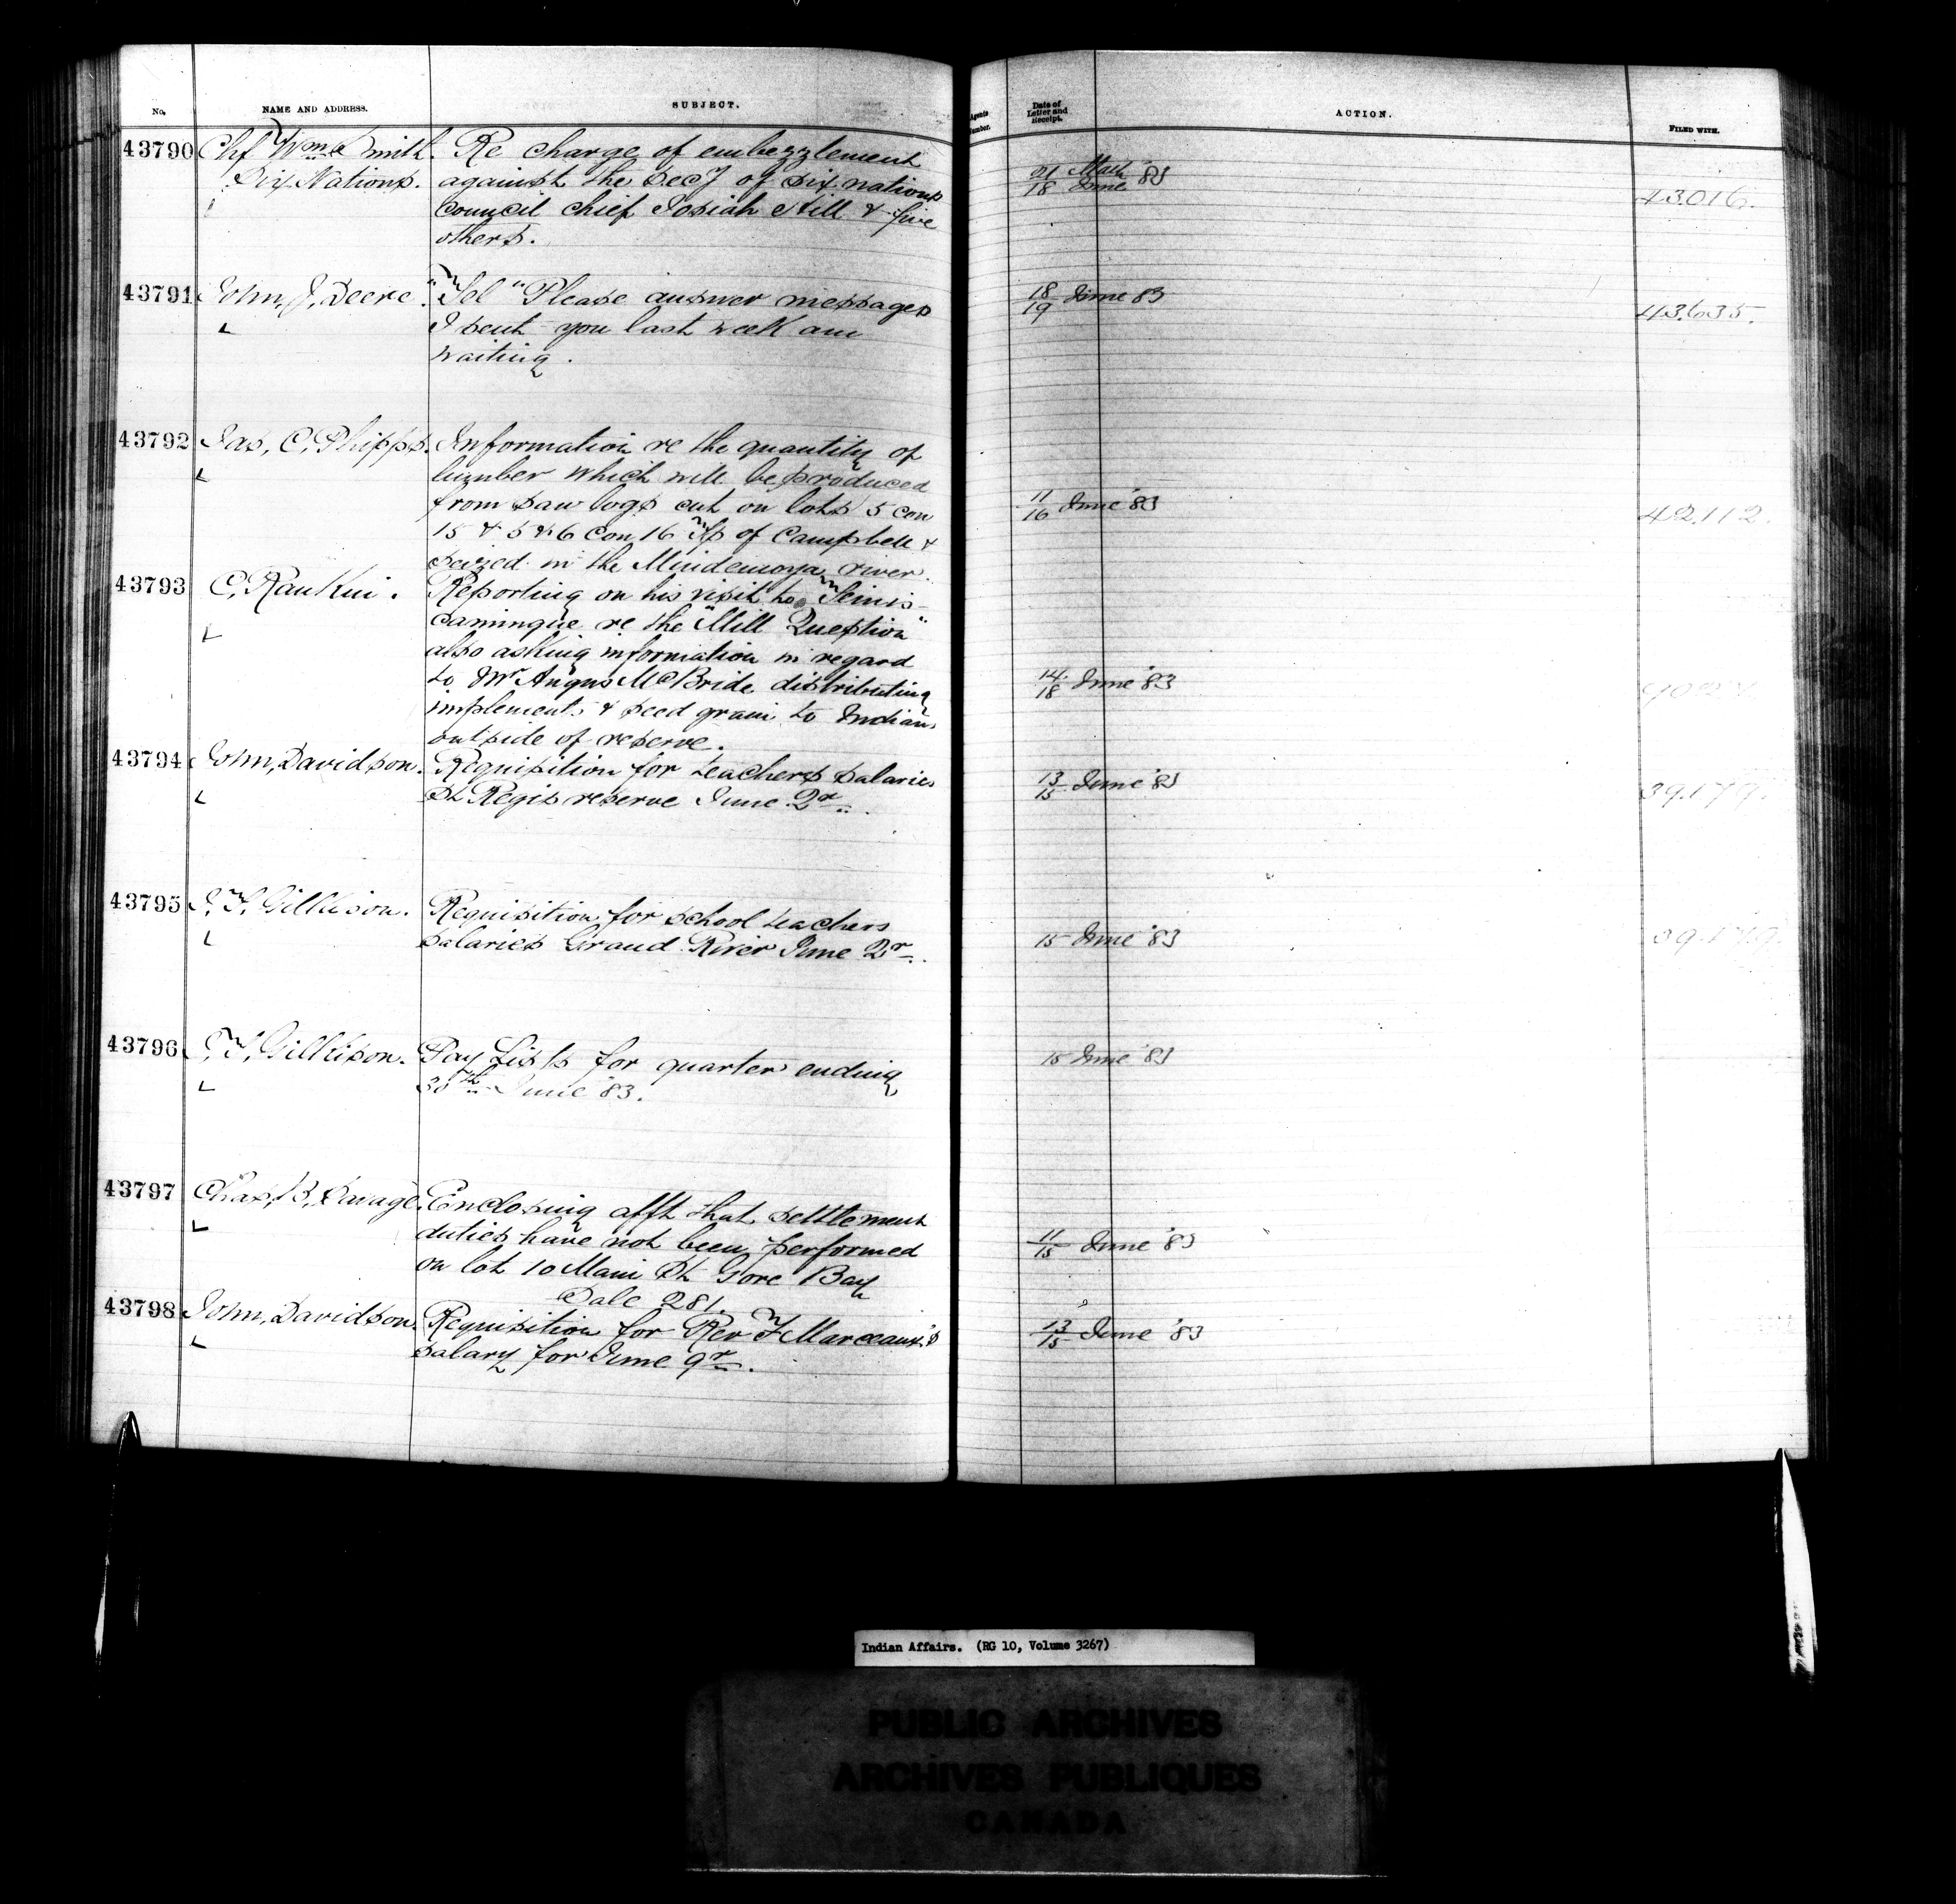 No. NAME AND ADDRESS. SUBJECT. Agents Number. Date of Letter and Receipt. ACTION. FILED WITH.
43790 Chf Wm Smith. Re charge of embezzlement
Six Nations. against the Secy of Six nations 21 March / 18 June '83 43.016.
Council chief Josiah Hill & five
others.
43791 John, J, Deere. Tel "Please answer messages 18/19 June 83 43.635.
I sent you last week am
waiting.
43792 Jas, C, Phipps. Information re the quantity of
lumber which will be produced
from saw logs cut on lots 5 con 11/16 June '83 42.112.
15 & 5 & 6 Con 16 Tp of Campbell &
seized in the Mindemoya river.
43793 C, Rankin. Reporting on his visit to Temis-
camingue re the "Mill Question"
also asking information in regard
to Mr Angus McBride distributing 14/18 June '83
implements & seed grain to Indians
outside of reserve.
43794 John, Davidson. Requisition for teachers salaries 13/15 June '83 39.179.
St Regis reserve June 2r.
43795 J, T, Gilkison. Requisition for school teachers
salaries Grand River June 2r. 15 June '83 39.179.
43796 J, T, Gilkison. Pay Lists for quarter ending 15 June '83
30th June '83.
43797 Chas, B, Savage. Enclosing afft that settlement
duties have not been performed 11/15 June '83
on lot 10 Main St Gore Bay
Sale 281.
43798 John, Davidson. Requisition for Rev F Marceaux's 13/15 June '83
salary for June qr.
Indian Affairs. (RG 10, Volume 3267)
PUBLIC ARCHIVES
ARCHIVES PUBLIQUES
CANADA